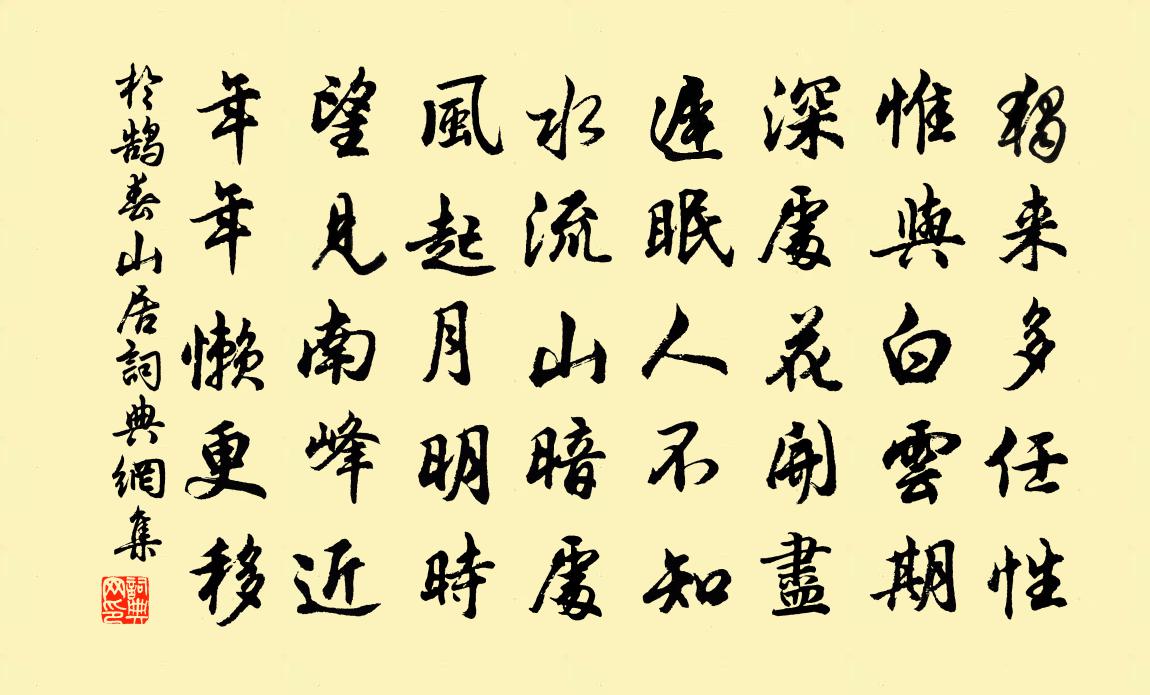 獨来多任性
惟與白雲期
深處花開盡
遲眠人不知
水流山暗處
風起月明時
望見南峰近
年年懶更移
於鵠春山居詞典網集
詞典网印